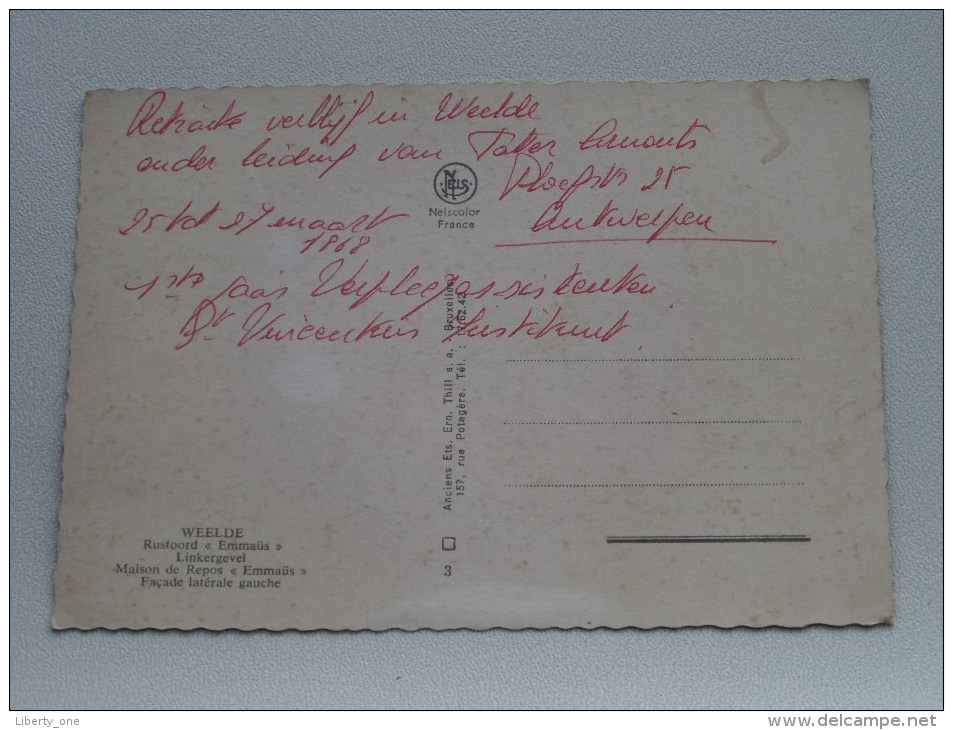 Retraite verblijf in Weelde
onder leiding van Pater Arnouts
Ploegstr 25
Antwerpen
25 tot 27 maart
1968
1ste jaar Verpleegassistenten
St Vincentius Instituut
NELS
Nelscolor
France
Anciens Ets. Ern. Thill s. a. - Bruxelles
157, rue Potagère. Tél. : 17.62.42
3
WEELDE
Rustoord « Emmaüs »
Linkergevel
Maison de Repos « Emmaüs »
Façade latérale gauche
Liberty_one
delcampe.net